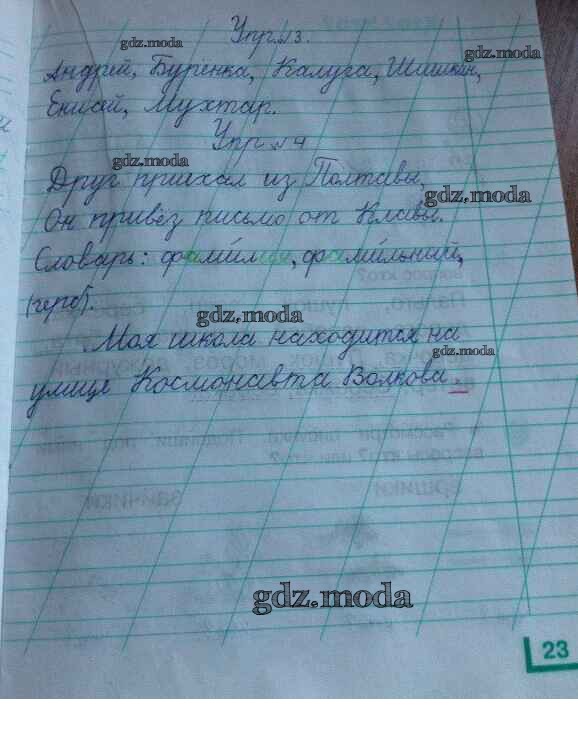 Упр. 13.
gdz.moda
gdz.moda
Андрей, Буренка, Калуга, Шишкин,
Енисей, Мухтар.
Упр. 14
gdz.moda
Друг приехал из Полтавы.
gdz.moda
Он привёз письмо от Клавы.
Словарь: фами́лия, фами́льный,
(герб).
gdz.moda
Моя школа находится на
gdz.moda
улице Космонавта Волкова.
gdz.moda
23